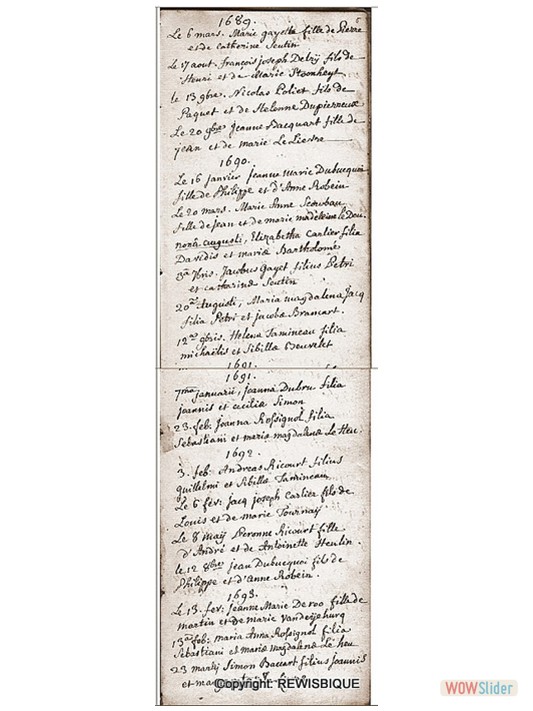 1689.
Le 6 mars. Marie gayette fille de Pierre
et de Catherine Seutin
Le 17 aout. François joseph Detry fils de
Henri et de Marie
le 13 9bre. Nicolas Poliet fils de
Paquet et de Helenne Dupierreux
Le 20 9bre Jeanne Bacquart fille de
jean et de marie Le Lievre
1690.
Le 16 janvier jeanne marie Dubucquoi
fille de Philippe et d'Anne Robein
Le 20 mars. Marie Anne
fille de jean et de marie madeleine le Dou.
nonâ augusti, Elizabetha Carlier filia
Davidis et mariæ Bartholomé
3a 7bris. Jacobus Gayet filius Petri
et catharinæ Seutin
20a Augusti, Maria magdalena Jacq
filia Petri et jacobæ Brancart.
12a 9bris. Helena Tamineau filia
michaëlis et Sibillæ
1691.
1691.
7ma januarii, joanna Dubru filia
joannis et ceciliæ Simon
23. feb. Joanna Rossignol filia
Sebastiani et mariæ magdalenæ Le Heu.
1692.
3. feb. Andreas Ricourt filius
guillelmi et Sibillæ Tamineau
Le 6 fév: Jacq joseph Carlier fils de
Louis et de marie Tournay
Le 8 maÿ Peronne Ricourt fille
d'André et de Antoinette Heulin.
le 12 8bre jean Dubucquoi fils de
Philippe et d'anne Robein.
1693.
Le 13. fev: jeanne Marie De roo fille de
martin et de marie
13a feb: maria Anna Rossignol filia
Sebastiani et mariæ magdalenæ Le heu
23 martij Simon Baccart filius joannis
et
©opyright: REWISBIQUE
WOWSlider